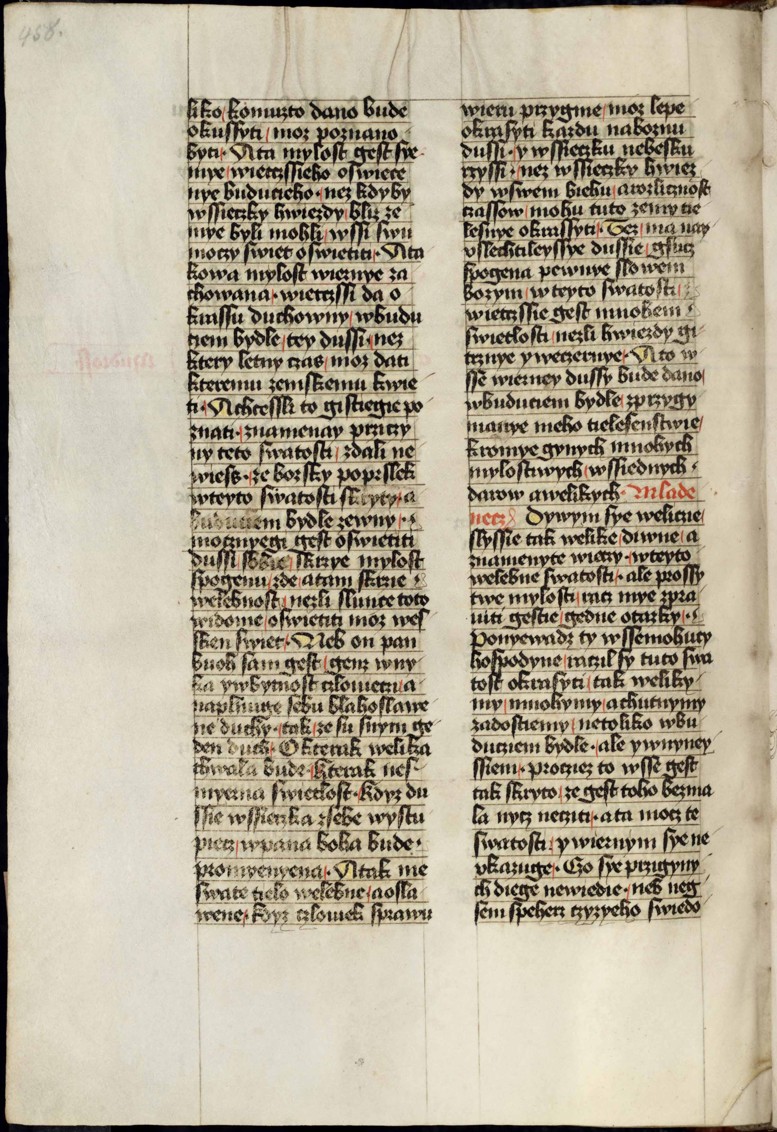 458.
liko komuzto dano bude
okussyti / moz poznano
byti · A ta mylost gest sye
mye / wietczssieho oswiete
nye buduczieho · nez kdyby
wssieczky hwiezdy / bliz ze
mye byli mohli / wssi swu
moczy swiet oswietiti · A ta
kowa mylost wiernye za
chowana · wietczssi da o
krassu duchowny / wbudu
cziem bydle / tey dussi / nez
ktery letny czas / moz dati
kteremu zemskemu kwie
ti · A chcessli to gistiegie po
znati / znamenay prziczy
ny teto swatosti / zdali ne
wiess · ze bozsky poprslek
wteyto swatosti skryty / a
buducziem bydle zewny ·
mocznyegi gest oswietiti
dussi skrzye mylost
spogenu / zde / a tam skrzie
welebnost / nezli slunce toto
widome / oswietiti moz wes
sken swiet · Neb on pan
buoh sam gest / genz wny
ka ywbytnost czlowieczu / a
naplnuge sebu blahoslawe
ne duchy · tak / ze su snym ge
den duch · O kterak welika
chwala bude · kterak nes
myerna swietlost · kdyz du
ssie wssieczka zsebe wystu
piecz / wpana boha bude
promyenyena · A tak me
swate tielo welebne / a osla
wene / kdyz czlowiek sprawu
wieru przygme / moz lepe
okrasyti kazdu naboznu
dussi · y wssieczku nebesku
rzyssi · nez wssieczky hwiez
dy wswem biehu / a wozlicznost
czassow / mohu tuto zemy tie
lesnye okrassyti · Gez / ma nay
vslechtileyssye dussie / gsucz
spogena pewnye slowem
bozym / w teyto swatosti
wietczssie gest mnohem
swietlosti / nezli hwiezdy gi
trznye y weczernye · A to w
sse wierney dussy bude dano
wbuducziem bydle / zprzygy
manye meho tielesenstwie
kromye gynych mnohych
mylostiwych / wssiednych
darow a welikych · Mlade
necz Dywym sye weliczie
slyssie tak welike / diwne / a
znamenyte wieczy · wteyto
welebne swatosti · ale prossy
twe mylosti / racz mye zpra
witi gestie / gedne otazky ·
Ponyewadz ty wssemohucy
hospodyne / raczil sy tuto swa
tost okrasyti / tak weliky
my / mnohymy / a chutnymy
zadostiemy / netoliko wbu
ducziem bydle · ale ywnyney
ssiem / proczez to wsse gest
tak skryto / ze gest toho bezma
la nycz neczuti · a ta mocz te
swatosti / y wiernym sye ne
vkazuge · Czo sye przigyny
ch diege newiedie · neb neg
sem speherz czyzyeho swiedo